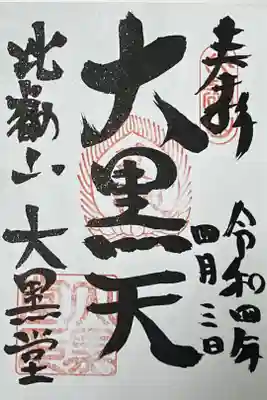 奉拝
令和四年
四月三日
大黒天
比叡山 大黒堂